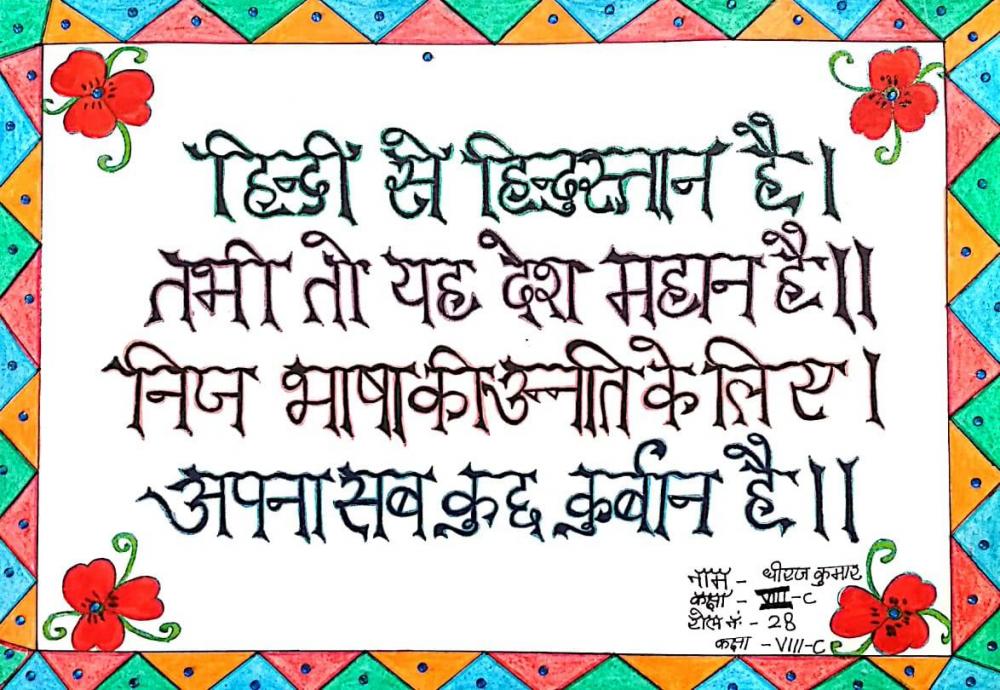 हिन्दी से हिन्दुस्तान है।
तभी तो यह देश महान है॥
निज भाषा की उन्नति के लिए।
अपना सब कुछ कुर्बान है॥
नाम - धीरज कुमार
कक्षा - VIII-C
रोल नं - 28
कक्षा - VIII-C